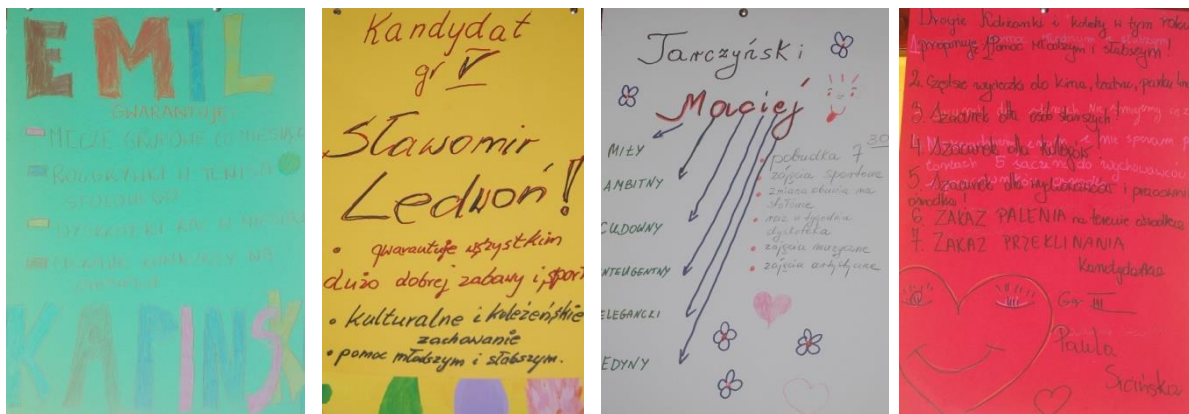 EMIL
GWARANTUJĘ:
MECZE GRUPOWE CO MIESIĄC
ROZGRYWKI W TENISA
STOŁOWEGO
RAZ W MIESIĄCU
KAPIŃSK
Kandydat
gr V
Sławomir
Ledwoń!
• gwarantuje wszystkim
dużo dobrej zabawy i sport
• kulturalne i koleżeńskie
zachowanie
• pomoc młodszym i słabszym.
Jarczyński
Maciej
MIŁY
AMBITNY
CUDOWNY
INTELIGENTNY
ELEGANCKI
JEDYNY
• pobudka 7 30
• zajęcia sportowe
• zmiana obuwia na
stołówce
• raz w tygodniu
dyskoteka
• zajęcia muzyczne
• zajęcia artystyczne
Drogie Koleżanki i koledzy w tym roku
proponuję 1. Pomoc młodszym i słabszym!
2. Częstsze wycieczki do kina, teatru, parku
3. Szacunek dla osób starszych!
4. Szacunek dla kolegów!
5. Szacunek dla wychowawców i pracowników
ośrodka!
6. ZAKAZ PALENIA na terenie ośrodka
7. ZAKAZ PRZEKLINANIA
Kandydatka
Gr III
Paula
Sicińska